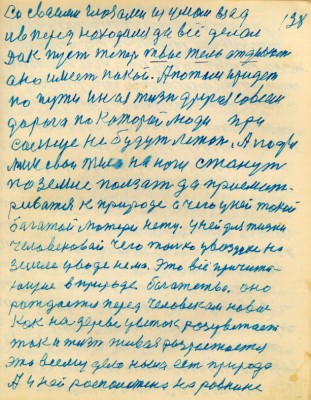 со своими глазами и умом взад
и вперед находился да всё делал
Так пусть теперь твоё тело отдыхает
оно имеет покой. А потом придет
по пути иная жизнь другая совсем
дорога по которой люди при
солнце не будут летом. А подни
мим свои тела на ноги станут
по земле ползать да присмат-
риваться к природе а чего у ней такой
богатой матери нету. У ней для жизни
человековой чего только где хочь на
земле и воде нема. Это всё причита-
ющие в природе богатства. оно
рождается перед человеком новое
Как на дереве цветок разцветает
так и жизнь живая разрастается
это всему дело наша есть природа
А у ней расположено на равнине
138